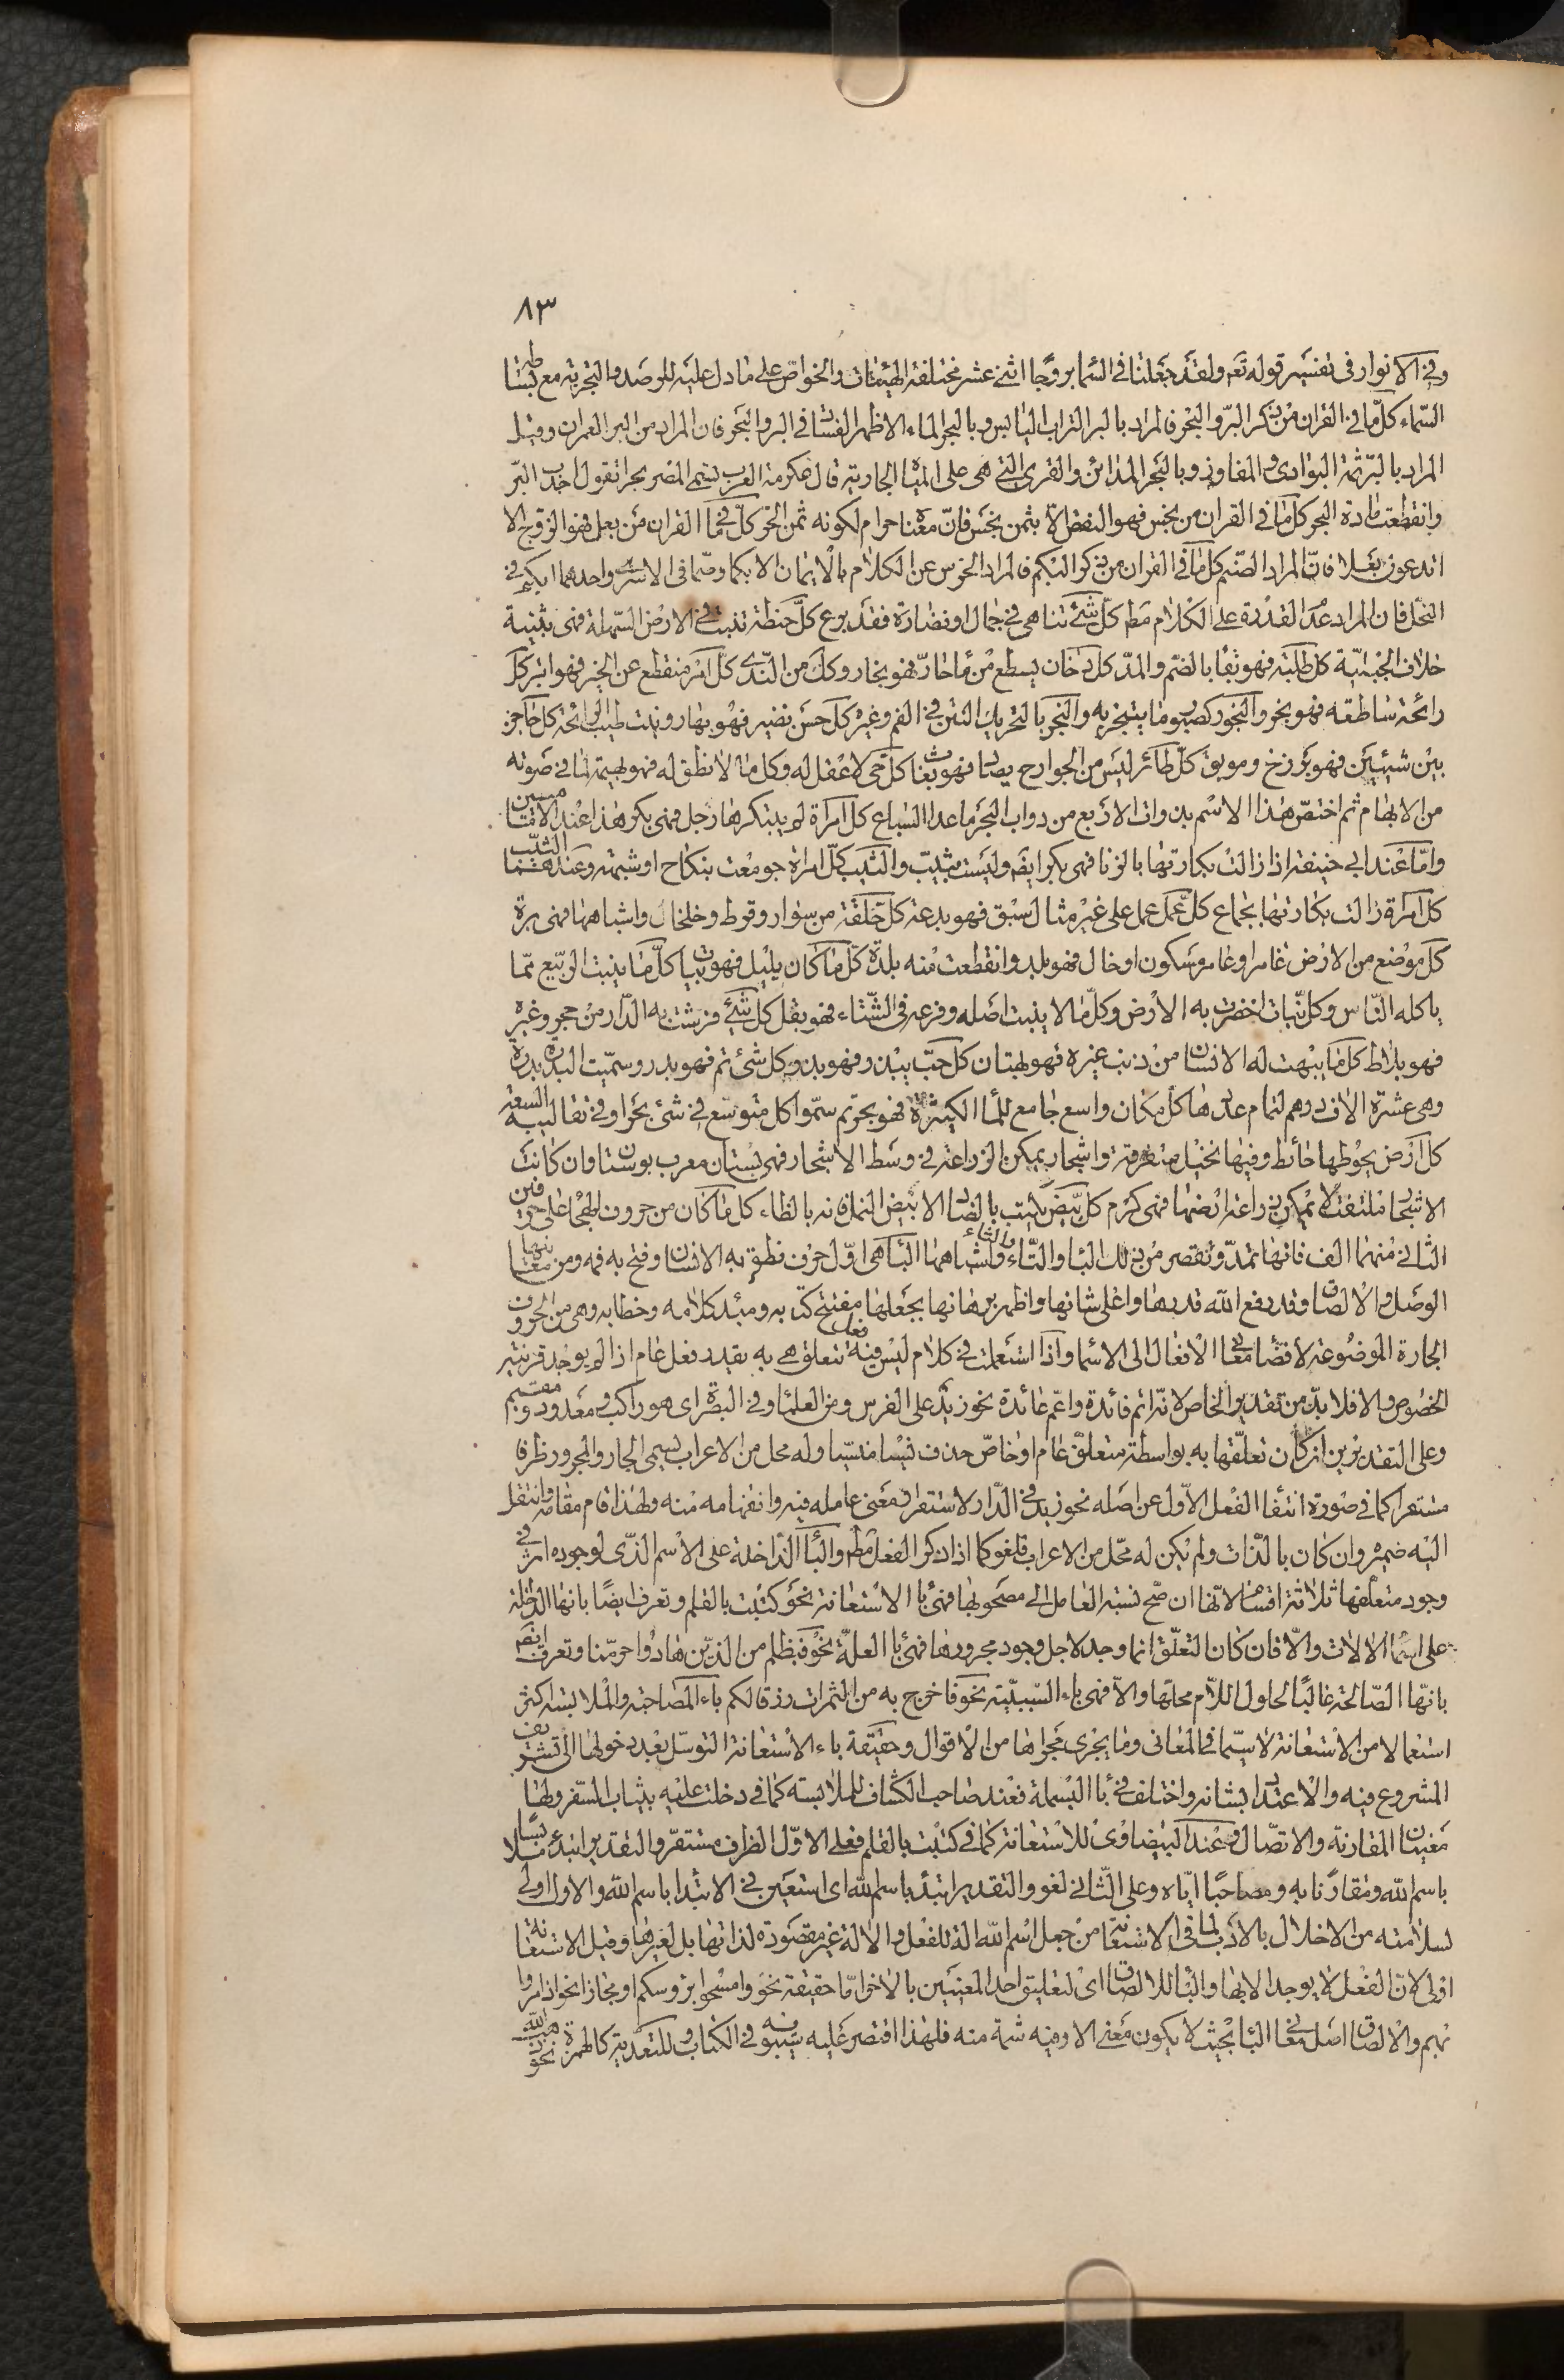 ٨٣
وفي الانوار في تفسير قوله تع ولقد جعلنا في السما بروجا اثنى عشر مختلفة الهيئات والخواص على ما دل عليه الرصد والتجربة مع بساطة
السماء كل ما في القران من ذكر البر والبحر فالمراد بالبر التراب اليابس وبالبحر الماء الا ظهر الفساد في البر والبحر فان المراد من البر العمران وقيل
المراد بالبر ثمة البوادى والمفاوز وبالبحر المدائن والقرى التي هي على المياه الجارية قال عكرمة العرب تسمى المصر بحرا تقول اجدب البر
وانقطعت مادة البحر كل ما في القران من بخس فهو النقص الا بثمن بخس فان معناه حرام لكونه ثمن الحر كل ما في القران من بعل فهو الزوج الا
اتدعون بعلا فان المراد الصنم كل ما في القران من ذكر البكم فالمراد الخرس عن الكلام بالايمان الا بكما وصما في الاسرى واحدهما ابكم في
النحل فان المراد عدم القدرة على الكلام مط كل شئ تناهى في جمال او نضارة فقد برع كل حنطة تنبت في الارض السهلة فهى بثنية
خلاف الجبلية كل طلبة فهو بغاء بالضم والمد كل دخان يسطع من ماء حار فهو بخار وكذا من الندى كل امر منقطع عن الخير فهو ابتر كل
رائحة ساطعة فهو بخر والبخور كصبور ما يتبخر به والبخر بالتحريك النتن في الفم وغيره كل حسن نضير فهو بهار ونبت طيب الرائحة كل حاجز
بين شيئين فهو برزخ وموبق كل طائر ليس من الجوارح يصاد فهو بغاث كل حي لا عقل له وكل ما لا نطق له فهو بهيمة لما في صوته
من الابهام ثم اختص هذا الاسم بذوات الاربع من دواب البحر ما عدا السباع كل امراة لم يبتكرها رجل فهى بكر هذا عند الامامين
واما عند ابي حنيفة اذا زالت بكارتها بالزنا فهى بكر ايضا وليست بثيب والثيب كل امراة جومعت بنكاح او شبهة وعندهما الثيب
كل امراة زالت بكارتها بجماع كل عمل عمل على غير مثال سبق فهو بدعة كل حلقة من سوار وقرط وخلخال واشباهها فهى برة
كل موضع من الارض عامر او غامر مسكون او خال فهو بلد وانقطعت منه بلدة كل ما كان بليل فهو بيات كل ما ينبت الربيع مما
ياكله الناس وكل نبات اخضرت به الارض وكل ما لا ينبت اصله وفرعه في الشتاء فهو بقل كل شئ فرشت به الدار من حجر وغيره
فهو بلاط كل ما يبهت له الانسان من ذنب غيره فهو بهتان كل حب يبذر فهو بذر وكل شئ تم فهو بدر وسميت البدرة بدرة
وهي عشرة الاف درهم لتمام عددها كل مكان واسع جامع للماء الكثير فهو بحر ثم سموا كل متوسع في شئ بحرا وفي تقاليبه السعة
كل ارض يحوطها حائط وفيها نخيل متفرقة واشجار يمكن الزراعة في وسط الاشجار فهى بستان معرب بوستان وان كانت
الاشجار ملتفة لا يمكن زراعة ارضها فهى كرم كل بيض يكتب بالضاد الا بيض النمل فانه بالظاء كل ما كان من حروف الهجاء على حرفين
الثاني منهما الف فانها تمد وتقصر من ذلك الباء والتاء والثاء واشباهها الباء هى اول حرف نطق به الانسان وفتح به فمه ومن معانيها
الوصل والالصاق وقد رفع الله قدرها واعلى شانها واظهر برهانها بجعلها مفتتح كتابه ومبتدا كلامه وخطابه وهى من الحروف
الجارة الموضوعة لافضاء معاني الافعال الى الاسماء واذا استعملت في كلام ليس فيه فعل تتعلق هى به يقدر فعل عام اذا لم يوجد قرينة
الخصوص والا فلا بد من تقدير الخاص لانه اتم فائدة واعم عائدة نحو زيد على الفرس ومن العلماء وفي البصرة اى هو راكب ومعدود ومقيم
وعلى التقديرين ان كان تعلقها به بواسطة متعلق عام او خاص حذف نسيا منسيا وله محل من الاعراب يسمى الجار والمجرور ظرفا
مستقرا كما في صورة انتفاء الفعل الاول عن اصله نحو زيد في الدار لاستقرار معنى عامله فيه وانفهامه منه ولهذا قام مقامه وانتقل
اليه ضميره وان كان بالذات ولم يكن له محل من الاعراب فلغو كما اذا ذكر الفعل مط والباء الداخلة على الاسم الذى لوجوده اثر في
وجود متعلقها ثلاثة اقسام لانها ان صح نسبة العامل الى مصحوبها فهى باء الاستعانة نحو كتبت بالقلم وتعرف ايضا بانها الداخلة
على اسماء الالات والا فان كان التعلق انما وجد لاجل وجود مجرورها فهى باء العلة نحو فبظلم من الذين هادوا حرمنا وتعرف ايضا
بانها الصالحة غالبا لحلول اللام محلها والا فهى باء السببية نحو فاخرج به من الثمرات رزقا لكم باء المصاحبة والملابسة اكثر
استعمالا من الاستعانة لا سيما في المعانى وما يجرى مجراها من الاقوال وحقيقة باء الاستعانة التوسل بعد دخولها الى تشريف
المشروع فيه والاعتداد بشانه واختلف في باء البسملة فعند صاحب الكشاف للملابسة كما في دخلت عليه بثياب السفر ولها
معنيان المقارنة والاتصال وعند البيضاوى للاستعانة كما في كتبت بالقلم فعلى الاول الظرف مستقر والتقدير ابتدئ ملابسا
باسم الله ومقارنا به ومصاحبا اياه وعلى الثاني لغو والتقدير ابتدأ باسم الله اى استعين في الابتدا باسم الله والاول اولى
لسلامته من الاخلال بالادب لما في الاستعانة من جعل اسم الله الة للفعل والالة غير مقصودة لذاتها بل لغيرها وقيل الاستعانة
اولى لان الفعل لا يوجد الا بها والباء للالصاق اى لتعليق احد المعنيين بالاخر اما حقيقة نحو وامسحوا برؤسكم او مجازا نحو اذا مروا
بهم والالصاق اصل معاني الباء بحيث لا يكون معنى الا وفيه شمة منه فلهذا اقتصر عليه سيبويه في الكتاب وللتعدية كالهمزة نحو ذهب الله